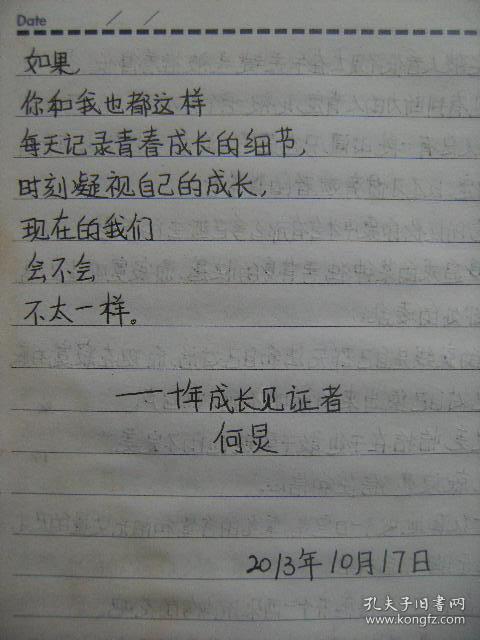 Date / /
如果
你和我也都这样
每天记录青春成长的细节,
时刻凝视自己的成长,
现在的我们
会不会
不太一样。
——十年成长见证者
何炅
2013年10月17日
孔夫子旧书网
www.kongfz.com